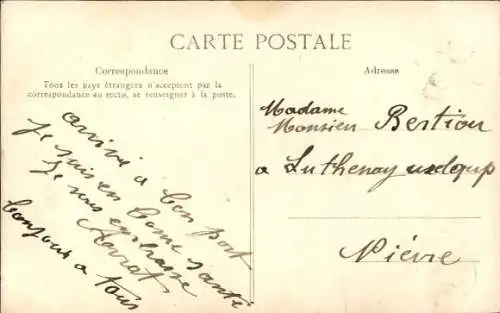 CARTE POSTALE
Correspondance
Tous les pays étrangers n'acceptent pas la
correspondance au recto, se renseigner à la poste.
arrivé a bon port
Je suis en bonne santé
Je vous embrasse
bonjour a tous
Adresse
Madame
Monsieur Bertiou
a Luthenay uxeloup
Nièvre